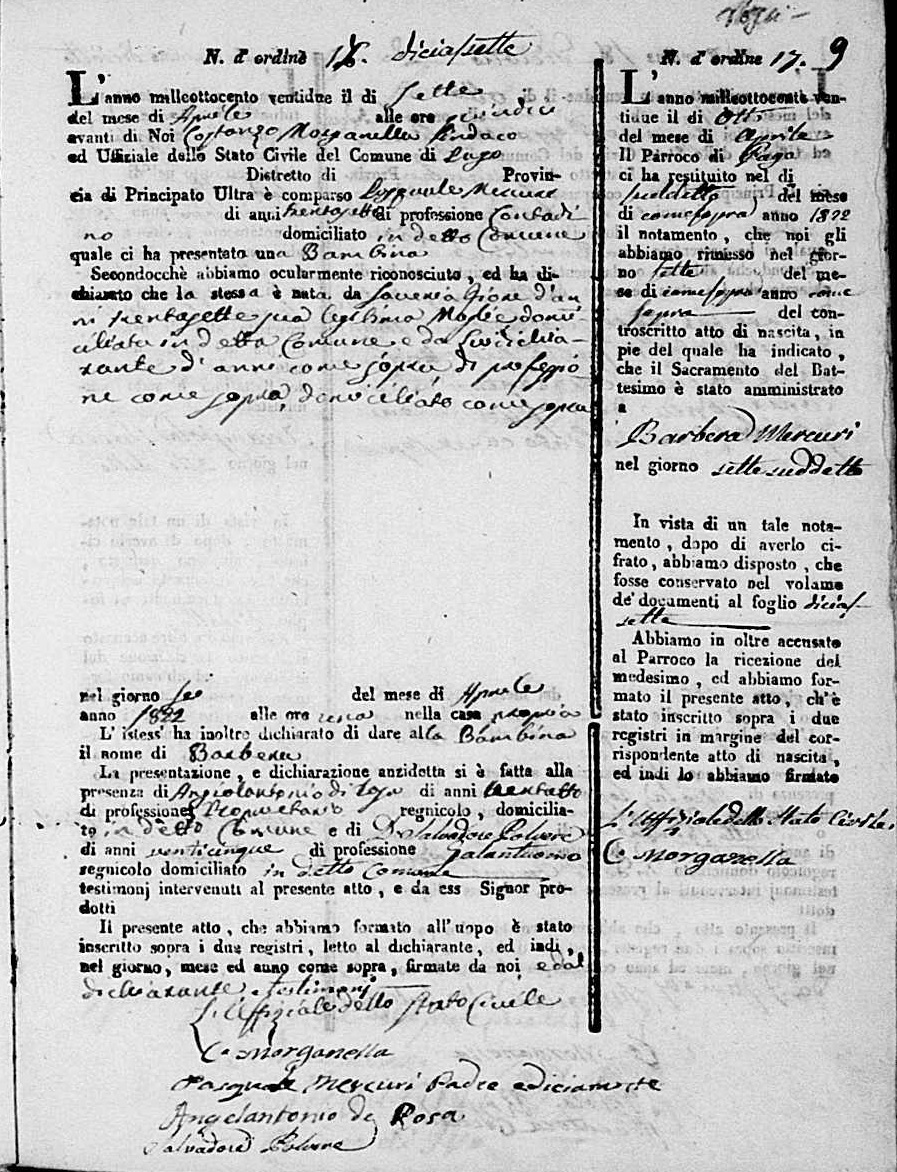 N. d'ordine 17. diciasette
L'anno milleottocento ventidue il di sette
del mese di Aprile alle ore undici
avanti di Noi Costanzo Morganella Sindaco
ed Uffiziale dello Stato Civile del Comune di
Distretto di Provin-
cia di Principato Ultra è comparso Pasquale Mercuri
di anni trentasette di professione Contadi
no domiciliato in detto Comune
quale ci ha presentato una Bambina
Secondocchè abbiamo ocularmente riconosciuto, ed ha di-
chiarato che la stessa è nata da Saveria d'an
ni trentasette sua legitima Moglie domi
ciliata in detta Comune e da lui dichia-
rante d'anni come sopra, di professio
ne come sopra, domiciliato come sopra
nel giorno sei del mese di Aprile
anno 1822 alle ore nella casa propria
L' istess' ha inoltre dichiarato di dare alla Bambina
il nome di Barbera
La presentazione, e dichiarazione anzidetta si è fatta alla
presenza di Angiolantonio di Rosa di anni trentatto
di professione Proprietario regnicolo, domicilia-
to in detto Comune e di D. Salvadore Polvere
di anni venticinque di professione Galantuomo
regnicolo domiciliato in detto Comune
testimonj intervenuti al presente atto, e da ess Signor pro-
dotti
Il presente atto, che abbiamo formato all'uopo è stato
inscritto sopra i due registri, letto al dichiarante, ed indi,
nel giorno, mese ed anno come sopra, firmate da noi e dal
dichiarante e testimonj
L'Uffiziale dello Stato Civile
C. Morganella
Pasquale Mercuri Padre
Angelantonio de Rosa
Salvadore Polvere
9
N. d'ordine 17.
L'anno milleottocento ven-
tidue il di Otto
del mese di Aprile
Il Parroco di Pago
ci ha restituito nel di
suddetto del mese
di come sopra anno 1822
il notamento, che noi gli
abbiamo rimesso nel gior-
no sette del me-
se di come sopra anno come
sopra del con-
troscritto atto di nascita, in
pie del quale ha indicato,
che il Sacramento del Bat-
tesimo è stato amministrato
a
Barbera Mercuri
nel giorno sette suddetto
In vista di un tale nota-
mento, dopo di averlo ci-
frato, abbiamo disposto, che
fosse conservato nel volame
de' documenti al foglio dicias
sette
Abbiamo in oltre accusato
al Parroco la ricezione del
medesimo, ed abbiamo for-
mato il presente atto, ch'è
stato inscritto sopra i due
registri in margine del cor-
rispondente atto di nascita,
ed indi lo abbiamo firmato
L'Uffiziale dello Stato Civile
C. Morganella